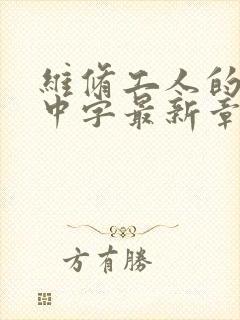 維脩工人的
中字最新章
方有勝